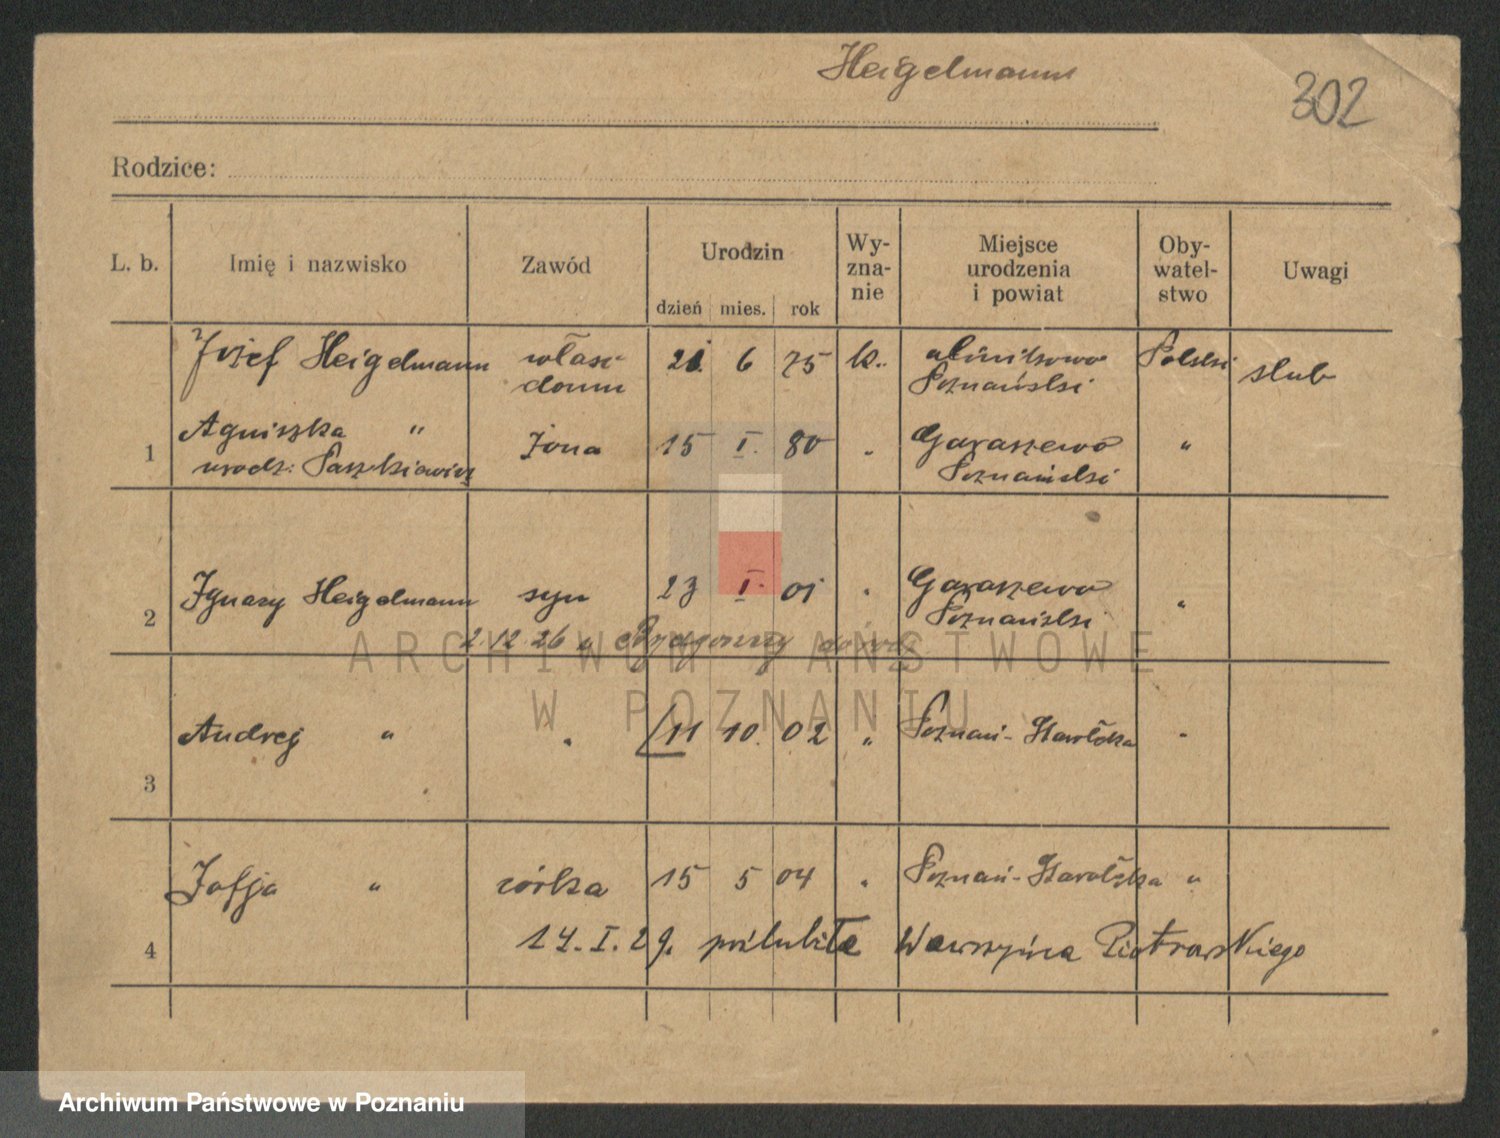 Heigelmann
302
Rodzice:
L. b.
Imię i nazwisko
Zawód
Urodzin
dzień mies. rok
Wy-
zna-
nie
Miejsce
urodzenia
i powiat
Oby-
watel-
stwo
Uwagi
Józef Heigelmann właśc 21 6 75 k. Polski ślub
domu Poznański
Agniszka " żona 15 I. 80 " Garaszewo "
1 urodz: Paszkiewicz Poznański
Ignacy Heigelmann syn 23 I. 01 " Garaszewo "
2 Poznański
2.12.26 z Bydgoszczy
Andrej " " 11 10. 02 " Poznań-Starołęka "
3
Zofja " córka 15 5 04 " Poznań-Starołęka "
4 14.I.29. poślubiła Wawrzyńca Piotrowskiego
ARCHIWUM PAŃSTWOWE
W POZNANIU
Archiwum Państwowe w Poznaniu